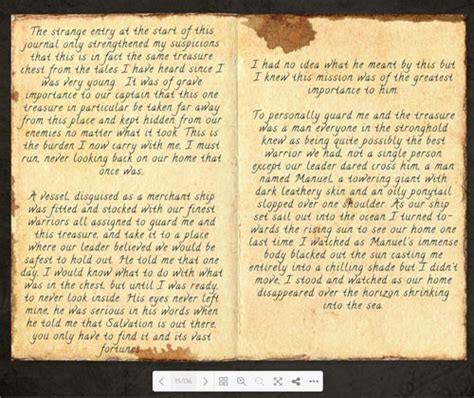 The strange entry at the start of this
journal only strengthened my suspicions
that this is in fact the same treasure
chest from the tales I have heard since I
was very young. It was of grave
importance to our captain that this one
treasure in particular be taken far away
from this place and kept hidden from our
enemies no matter what it took. This is
the burden I now carry with me. I must
run, never looking back on our home that
once was.
A vessel, disguised as a merchant ship
was fitted and stocked with our finest
warriors all assigned to guard me and
this treasure, and take it to a place
where our leader believed we would be
safest to hold out. He told me that one
day, I would know what to do with what
was in the chest, but until I was ready,
to never look inside. His eyes never left
mine, he was serious in his words when
he told me that Salvation is out there,
you only have to find it and its vast
fortunes
I had no idea what he meant by this but
I knew this mission was of the greatest
importance to him.
To personally guard me and the treasure
was a man everyone in the stronghold
knew as being quite possibly the best
warrior we had, not a single person
except our leader dared cross him, a man
named Manuel, a towering giant with
dark leathery skin and an oily ponytail
slopped over one shoulder. As our ship
set sail out into the ocean I turned to-
wards the rising sun to see our home one
last time. I watched as Manuel's immense
body blacked out the sun casting me
entirely into a chilling shade but I didn't
move, I stood and watched as our home
disappeared over the horizon shrinking
into the sea.